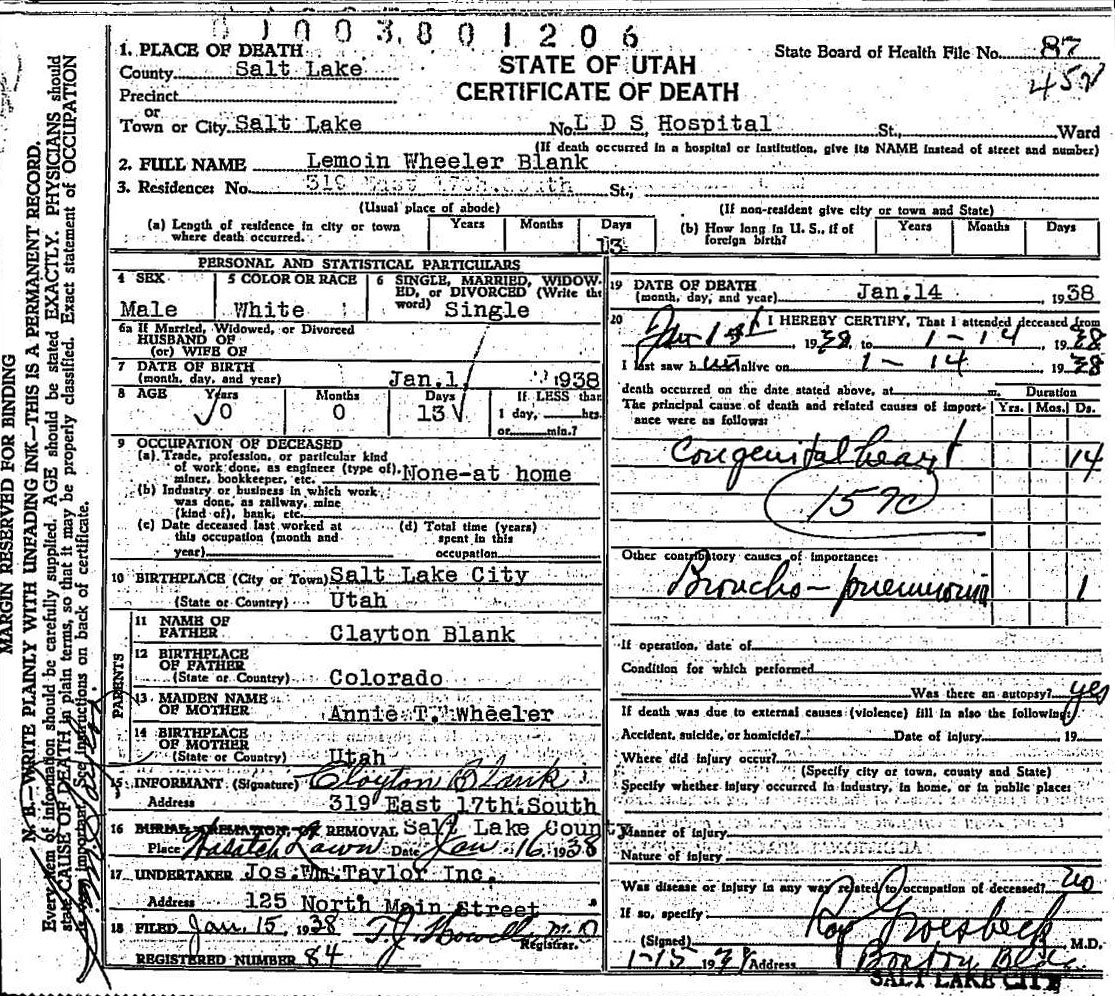 01003801206
1. PLACE OF DEATH
STATE OF UTAH
CERTIFICATE OF DEATH
State Board of Health File No. 87
County Salt Lake
Precinct
or
Town or City Salt Lake No. L D S Hospital St., Ward
(If death occurred in a hospital or institution, give its NAME instead of street and number)
2. FULL NAME Lemoin Wheeler Blank
3. Residence: No. 319 East 17th South St.,
(Usual place of abode) (If non-resident give city or town and State)
(a) Length of residence in city or town where death occurred. Years Months Days 13
(b) How long in U. S., if of foreign birth? Years Months Days
PERSONAL AND STATISTICAL PARTICULARS
4 SEX Male
5 COLOR OR RACE White
6 SINGLE, MARRIED, WIDOWED, or DIVORCED (Write the word) Single
6a If Married, Widowed, or Divorced
HUSBAND OF
(or) WIFE OF
7 DATE OF BIRTH
(month, day, and year) Jan. 1, 1938
8 AGE Years 0 Months 0 Days 13
If LESS than
1 day, hrs.
or min.?
9 OCCUPATION OF DECEASED
(a) Trade, profession, or particular kind
of work done, as engineer (type of),
miner, bookkeeper, etc. None-at home
(b) Industry or business in which work
was done, as railway, mine
(kind of), bank, etc.
(c) Date deceased last worked at
this occupation (month and
year)
(d) Total time (years)
spent in this
occupation
10 BIRTHPLACE (City or Town) Salt Lake City
(State or Country) Utah
PARENTS
11 NAME OF
FATHER Clayton Blank
12 BIRTHPLACE
OF FATHER
(State or Country) Colorado
13 MAIDEN NAME
OF MOTHER Annie T. Wheeler
14 BIRTHPLACE
OF MOTHER
(State or Country) Utah
15 INFORMANT (Signature) Clayton Blank
Address 319 East 17th.South
16 BURIAL, CREMATION, OR REMOVAL Salt Lake County
Place Wasatch Lawn Date Jan 16, 1938
17 UNDERTAKER Jos. Wm. Taylor Inc.
Address 125 North Main Street
18 FILED Jan. 15, 1938 T. J. Howells M.D
Registrar.
REGISTERED NUMBER 84
19 DATE OF DEATH
(month, day, and year) Jan.14 1938
20 I HEREBY CERTIFY, That I attended deceased from
Jan 1st 1938, to 1-14 1938
I last saw him alive on 1-14 1938
death occurred on the date stated above, at m.
The principal cause of death and related causes of importance were as follows:
Duration
Yrs. Mos. Ds.
Congenital heart 14
157c
Other contributory causes of importance:
Broncho-pneumonia 1
If operation, date of
Condition for which performed
Was there an autopsy? yes
If death was due to external causes (violence) fill in also the following:
Accident, suicide, or homicide? Date of injury 19
Where did injury occur?
(Specify city or town, county and State)
Specify whether injury occurred in industry, in home, or in public place:
Manner of injury
Nature of injury
Was disease or injury in any way related to occupation of deceased? no
If so, specify
(Signed) Roy Groesbeck M.D.
Address
SALT LAKE CITY
MARGIN RESERVED FOR BINDING
N. B.—WRITE PLAINLY WITH UNFADING INK—THIS IS A PERMANENT RECORD.
Every item of information should be carefully supplied. AGE should be stated EXACTLY. PHYSICIANS should
state CAUSE OF DEATH in plain terms, so that it may be properly classified. Exact statement of OCCUPATION
is very important. See instructions on back of certificate.